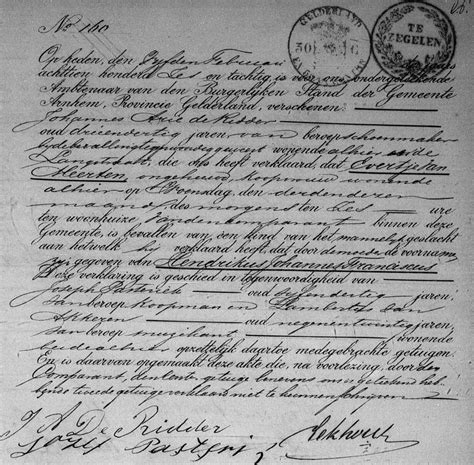 No 160
GELDERLAND
TE ZEGELEN
Op heden, den Vijfden Februari
achttien honderd Zes en tachtig is voor ons ondergeteekende
Ambtenaar van den Burgerlijken Stand der Gemeente
Arnhem, Provincie Gelderland, verschenen
Johannes Arie de Ridder
oud drieendertig jaren, van beroep schoenmaker
bij de bevalling tegenwoordig geweest wonende alhier
Langstraat, die ons heeft verklaard, dat Evertje van
Meerten ongehuwd Koopvrouw wonende
alhier op Woensdag, den derden dezer
maand, des morgens ten Zes ure
ten woonhuize van den comparant binnen deze
Gemeente, is bevallen van een kind van het mannelijk geslacht
aan hetwelk hij verklaard heeft, dat door de moeder de voorname
zijn gegeven van Hendrikus Johannes Franciscus
Deze verklaring is geschied in tegenwoordigheid van
Joseph oud vijfendertig jaren,
van beroep Koopman en Lambertus van
oud negenentwintig jaren,
van beroep muzikant, wonende
beide alhier opzettelijk daartoe medegebrachte getuigen.
En is daarvan opgemaakt deze akte die, na voorlezing, door den
Comparant, den eersten getuige benevens ons geteekend heb
tweede getuige verklaard niet te kunnen schrijven
J A De Ridder